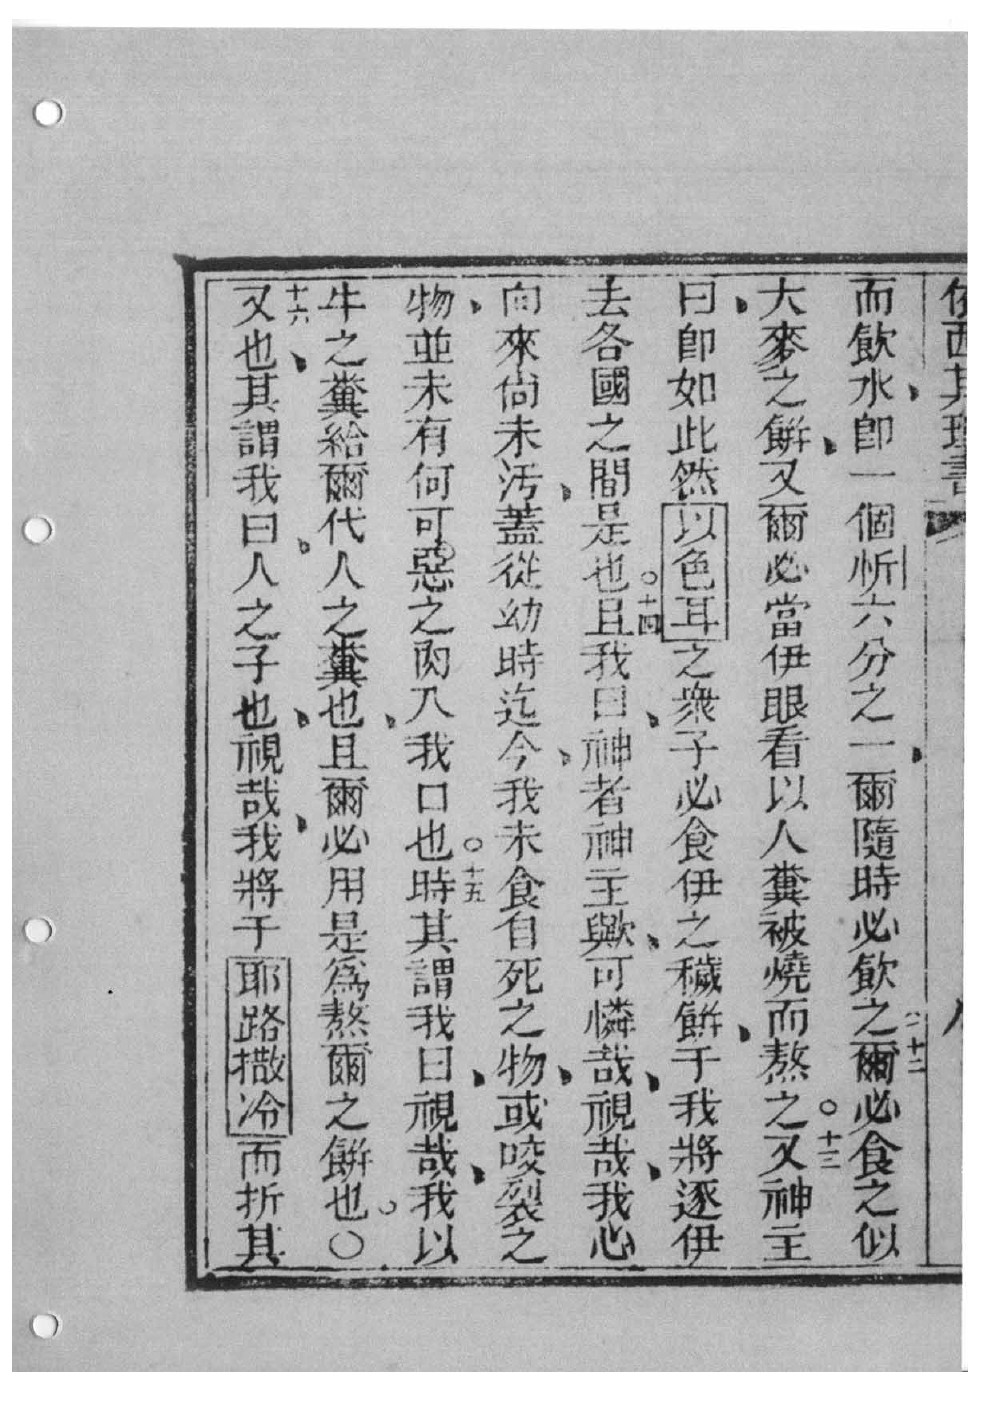 西其書
而飲水、卽一個忻六分之一、爾隨時必飲之○十二爾必食之似
大麥之餅、又爾必當伊眼看以人糞被燒而熬之○十三又神主
曰、卽如此然以色耳之衆子必食伊之穢餅、于我將逐伊
去各國之間是也○十四且我曰、神者神主歟、可憐哉、視哉、我心
向來尚未汚、蓋從幼時迄今、我未食自死之物、或咬裂之
物、並未有何可惡之肉入我口也○十五時其謂我曰、視哉、我以
牛之糞給爾代人之糞也、且爾必用是爲熬爾之餅也。○
十六又也、其謂我曰。人之子也、視哉、我將于耶路撒冷而折其